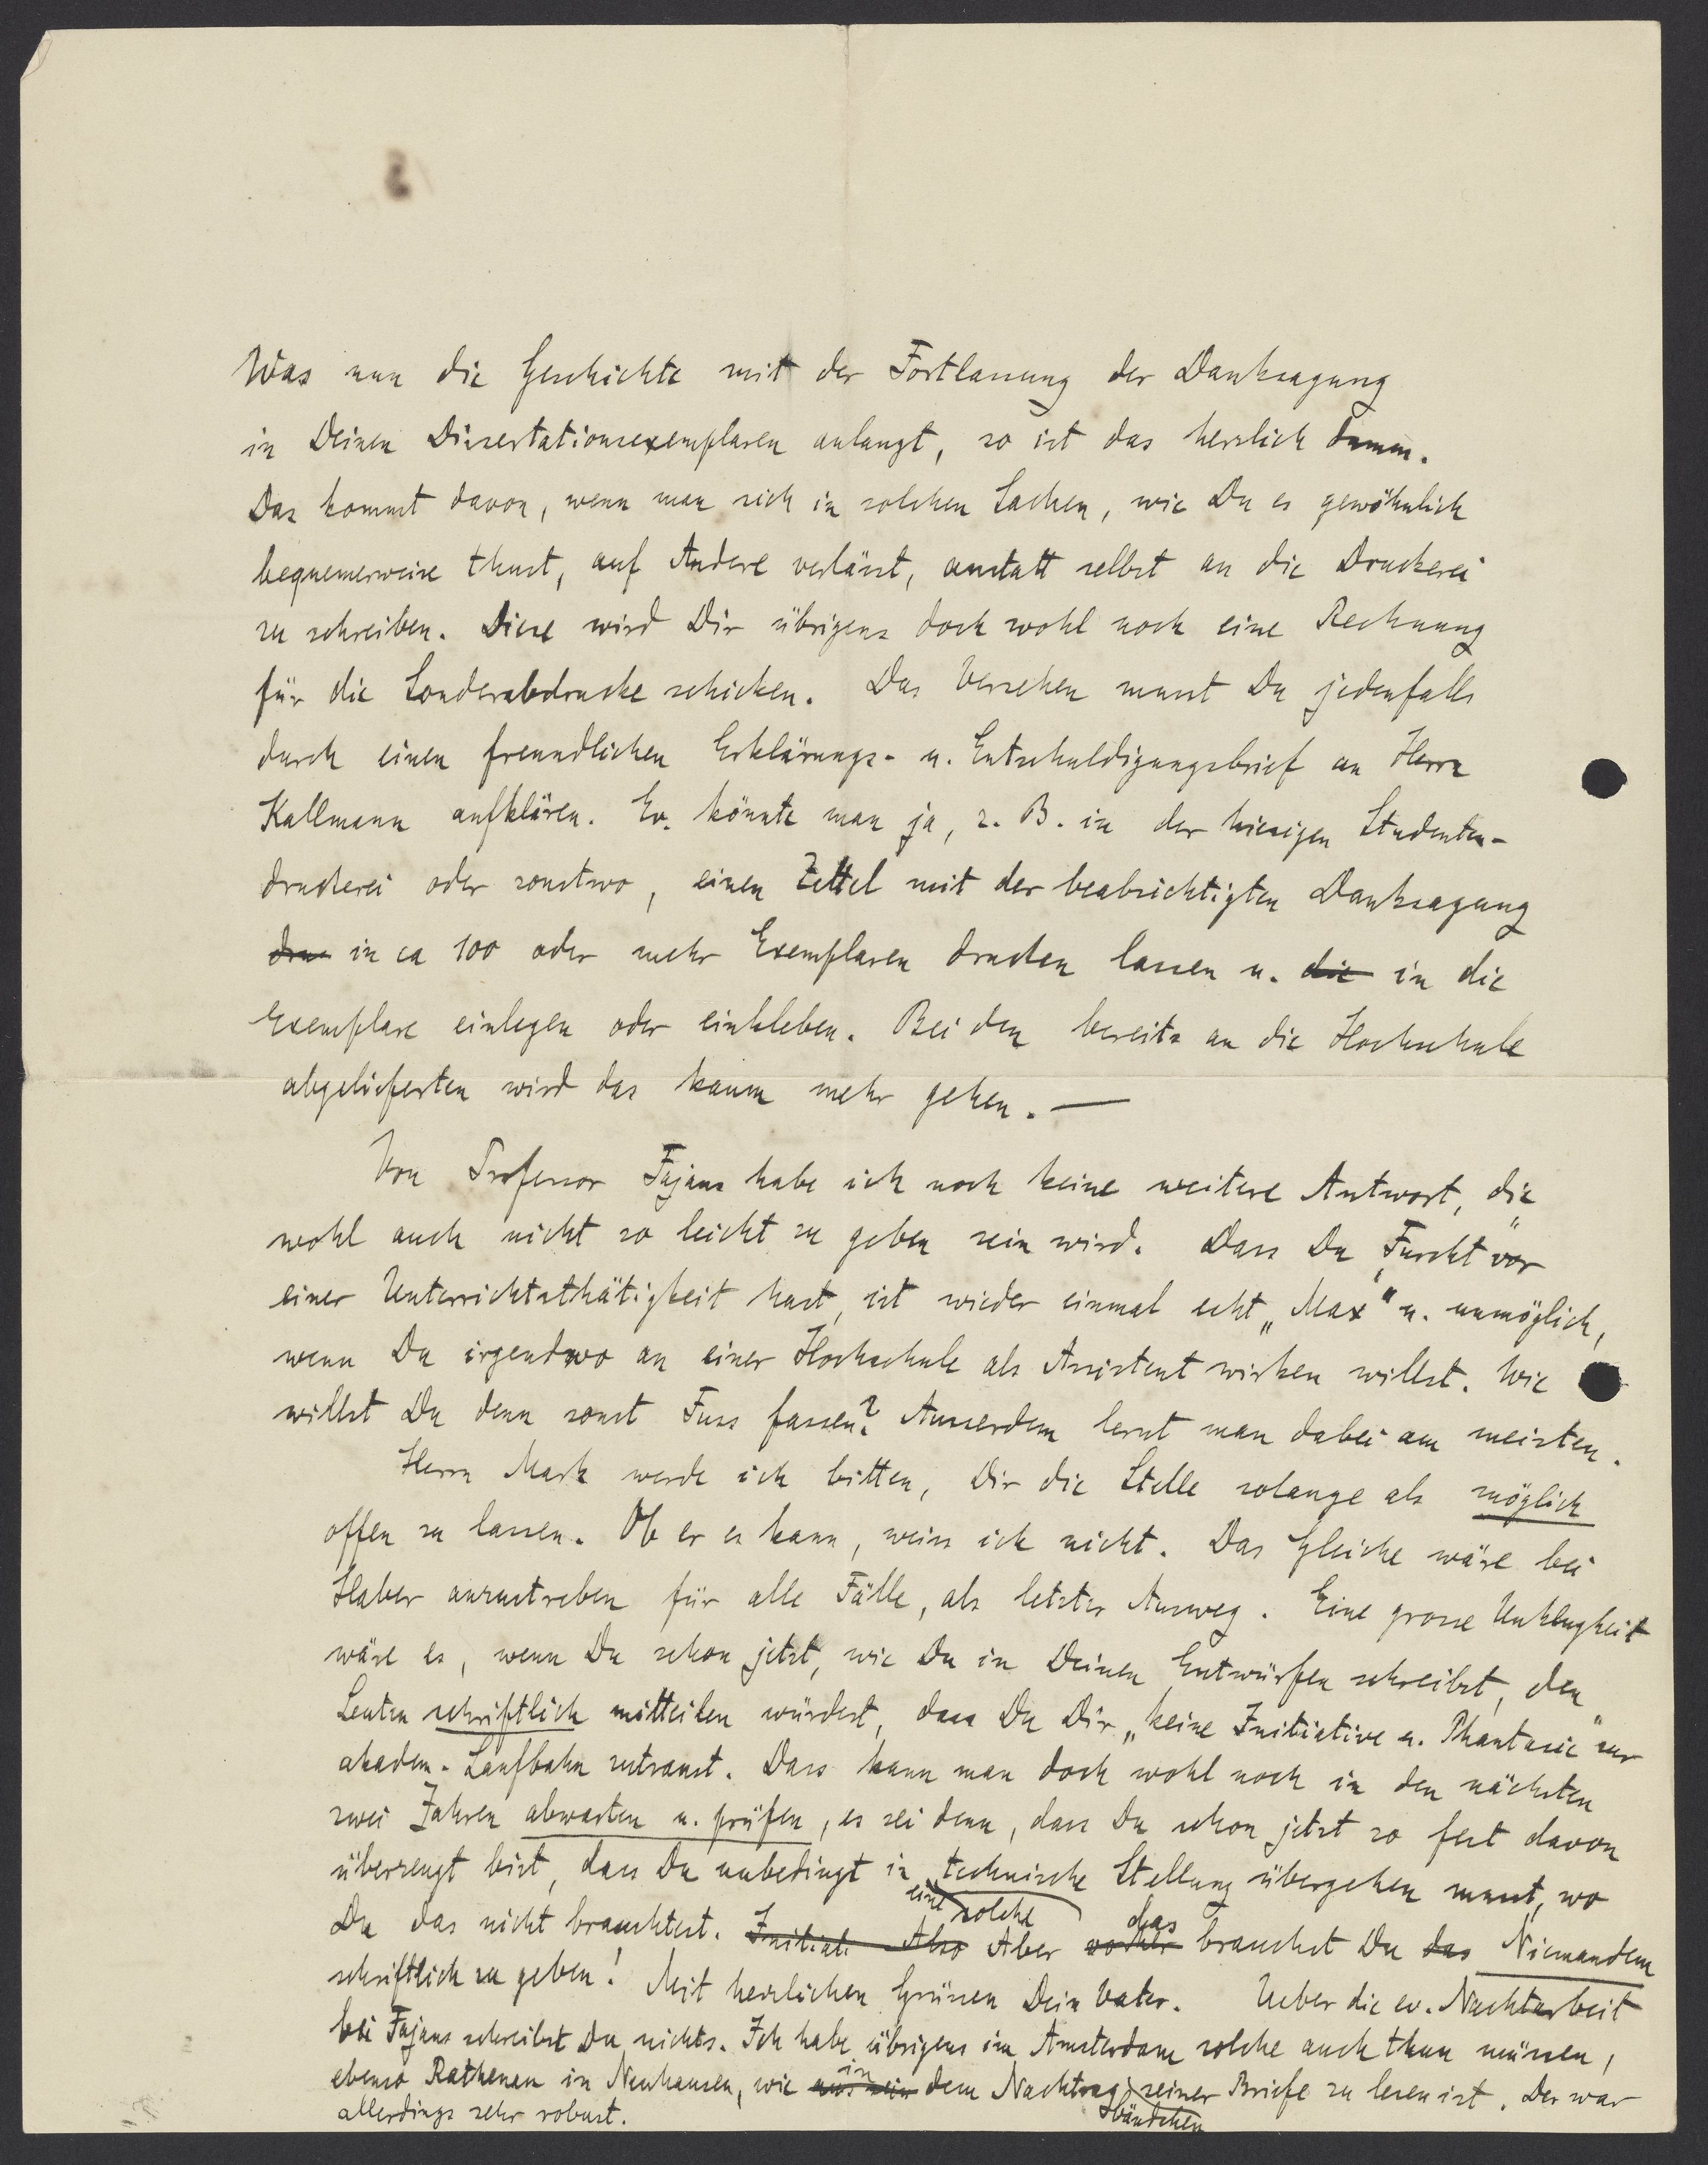 Was nun die Geschichte mit der Fortlassung der Danksagung
in Deinen Dissertationsexemplaren anlangt, so ist das herzlich dumm.
Das kommt davon, wenn man sich in solchen Sachen, wie Du es gewöhnlich
bequemerweise thust, auf Andere verlässt, anstatt selbst an die Druckerei
zu schreiben. Diese wird Dir übrigens doch wohl noch eine Rechnung
für die Sonderabdrucke schicken. Das Versehen musst Du jedenfalls
durch einen freundlichen Erklärungs- u. Entschuldigungsbrief an Herrn
Kallmann aufklären. Ev. könnte man ja, z. B. in der hiesigen Studenten-
druckerei oder sonstwo, einen Zettel mit der beabsichtigten Danksagung
dru in ca 100 oder mehr Exemplaren drucken lassen u. die in die
Exemplare einlegen oder einkleben. Bei den bereits an die Hochschule
abgelieferten wird das kaum mehr gehen. —
Von Professor Fajans habe ich noch keine weitere Antwort, die
wohl auch nicht so leicht zu geben sein wird. Dass Du „Furcht" vor
einer Unterrichtsthätigkeit hast, ist wieder einmal echt „Max" u. unmöglich,
wenn Du irgendwo an einer Hochschule als Assistent wirken willst. Wie
willst Du denn sonst Fuss fassen? Ausserdem lernt man dabei am meisten.
Herrn Mark werde ich bitten, Dir die Stelle solange als möglich
offen zu lassen. Ob er es kann, weiss ich nicht. Das Gleiche wäre bei
Haber anzustreben für alle Fälle, als letzter Ausweg. Eine grosse Unklugheit
wäre es, wenn Du schon jetzt, wie Du in Deinen Entwürfen schreibst, den
Leuten schriftlich mitteilen würdest, dass Du Dir „keine Initiative u. Phantasie" zur
akadem. Laufbahn zutraust. Dass kann man doch wohl noch in den nächsten
zwei Jahren abwarten u. prüfen, es sei denn, dass Du schon jetzt so fest davon
überzeugt bist, dass Du unbedingt in technische Stellung übergehen musst, wo
eine solche
Du das nicht brauchtest. Initiati Also Aber das brauchst Du das Niemandem
schriftlich zu geben! Mit herzlichen Grüssen Dein Vater. Ueber die ev. Nachtarbeit
bei Fajans schreibst Du nichts. Ich habe übrigens in Amsterdam solche auch thun müssen,
ebenso Rathenau in Neuhausen, wie in dem Nachtragsbändchen seiner Briefe zu lesen ist. Der war
allerdings sehr robust.